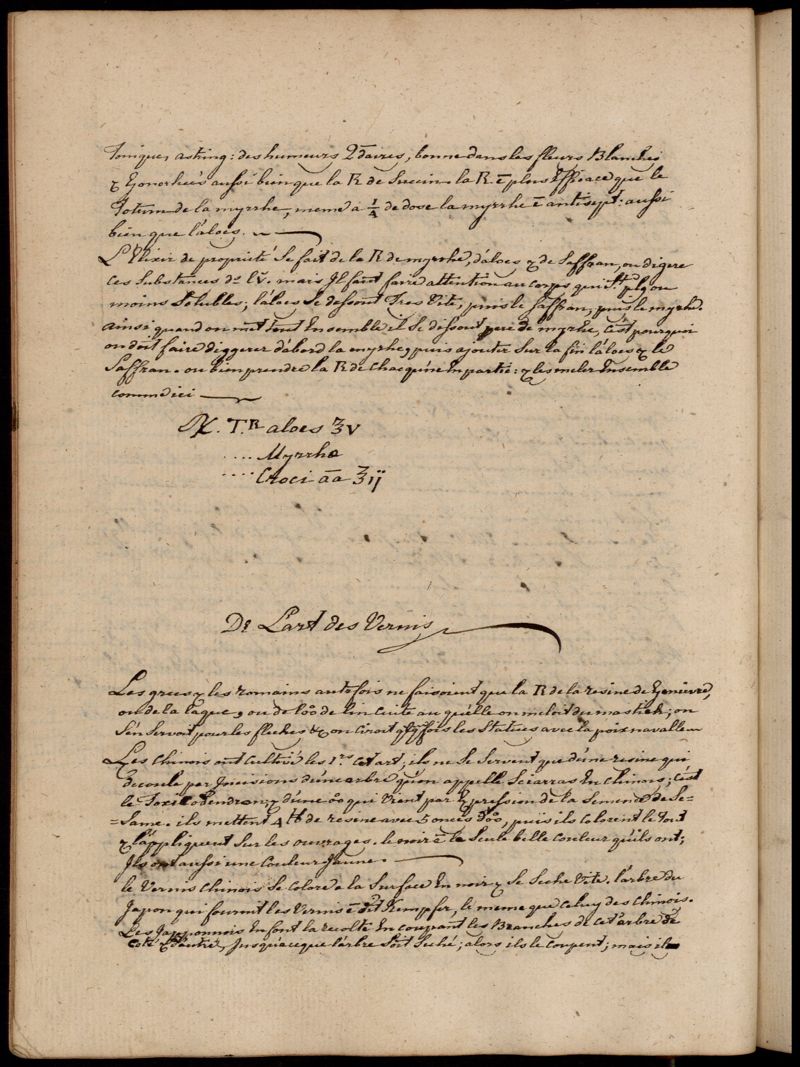 Tonique, astring: des humeurs 2daires, bonne dans les fleurs Blanches
& Gonorhées aussi bien que la R de Succin. la R ē plus Efficace que le
Totum de la myrrhe, meme a 1/4 de dose la myrrhe ē antisept: aussi
bien que l'aloes.
L'Elixir de proprieté se fait de la R de myrrhe, d'aloes & de Saffran, on digere
ces substances ds lv̄. mais Il faut faire attention au corps qui st plus ou
moins Solubles; l'aloes se dessout Tres Vite, puis le saffran, puis le myrhe.
ainsi quand on met tout Ensemble il se dissout peu de myrhe, c'est pourquoi
on doit faire diggerer d'abord la myrhe, puis ajouter sur la fin l'aloes & le
Saffran. ou bien prendre la R de chacquune En partie: & les meler Ensemble
comm̄e ici
℞. T.R aloes ʒv
.... Myrrhæ
.... Croci āā ʒij
De L'art des Vernis
Les grecs & les romains autefois ne faisoient que la R de la resine de Genievre,
ou de la laque, ou de l'oō de lin Cuite au quelle on meloit du mastich; on
s'en servoit pour les fleches & on Ciroit qqfois les Statues avec la poix navalle
Les Chinois ont Cultivé les 1ers cet art; ils ne se servent que d'une resine qui
decoule par Incisions d'un arbre qu'on appelle Sciarras En Chinois; c'est
le Toxicodendron & d'une oō qui vient par Expression de la Semence de Se-
=Same. ils mettent 4 ℔ de resine avec 5 onces d'oō, puis ils colorent le tout
& l'appliquent Sur les ouvrages. le noir ē la Seule belle Couleur qu'ils ont;
Ils ont aussi une Couleur Jaune.
le Vernis Chinois se colore a la Surface En noir & se seche Vite. l'arbre du
Japon qui fournit les Vernis ē dit Kempfer, le meme que celuy des Chinois.
Les Japponnois En font la recolte En coupant les Branches de cet arbre de
coté & d'autre, Jusqu'a ce que l'arbre soit Seché; alors ils le coupent; mais il